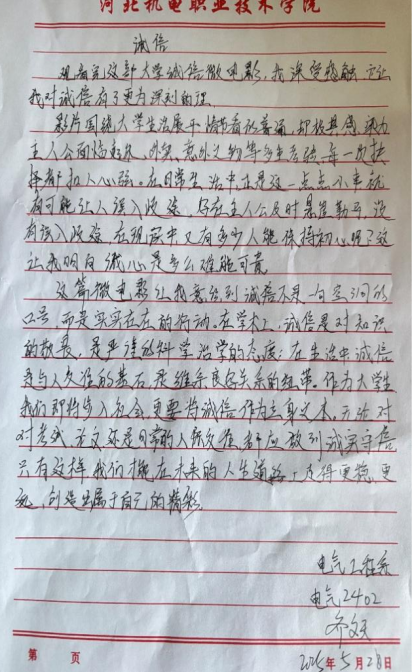 河北机电职业技术学院
诚信
观看完这部大学诚信微电影，我深受感触，它让
我对诚信有了更为深刻的理
影片围绕大学生活展开情节看似普通，却极具感染力
主人公面临 等多重考验，每一次抉
择都扣人心弦。在日常生活中正是这一点点小事就
有可能让人误入歧途，好在主人公及时悬崖勒马，没
有误入歧途，在现实中又有多少人能保持初心呢？这
让我明白诚心是多么难能可贵
这篇微电影让我意识到诚信不是一句空洞的
口号，而是实实在在的行动。在学术上，诚信是对知识
的敬畏，是严谨的科学治学的态度；在生活中诚信
是与人交往的基石，是维系良好关系的纽带。作为大学生
我们即将步入社会，更要将诚信作为立身之本，无论对
对考试、论文还是日常的人际交往，都应做到诚实守信
只有这样我们才能在未来的人生道路上走得更稳，更
远，创造出属于自己的精彩。
电气工程系
电气2402
第 页
2025年5月28日